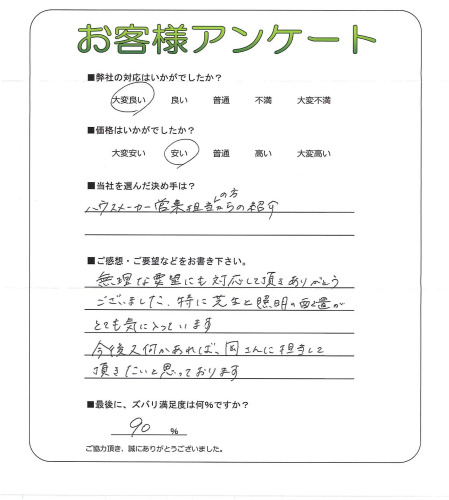 お客様アンケート
■弊社の対応はいかがでしたか？
大変良い 良い 普通 不満 大変不満
■価格はいかがでしたか？
大変安い 安い 普通 高い 大変高い
■当社を選んだ決め手は？
ハウスメーカー営業担当の方からの紹介
■ご感想・ご要望などをお書き下さい。
無理な要望にも対応して頂きありがとう
ございました。特に芝生と照明の配置が
とても気に入っています
今後又何かあれば、岡さんに担当して
頂きたいと思っております
■最後に、ズバリ満足度は何％ですか？
90 ％
ご協力頂き、誠にありがとうございました。